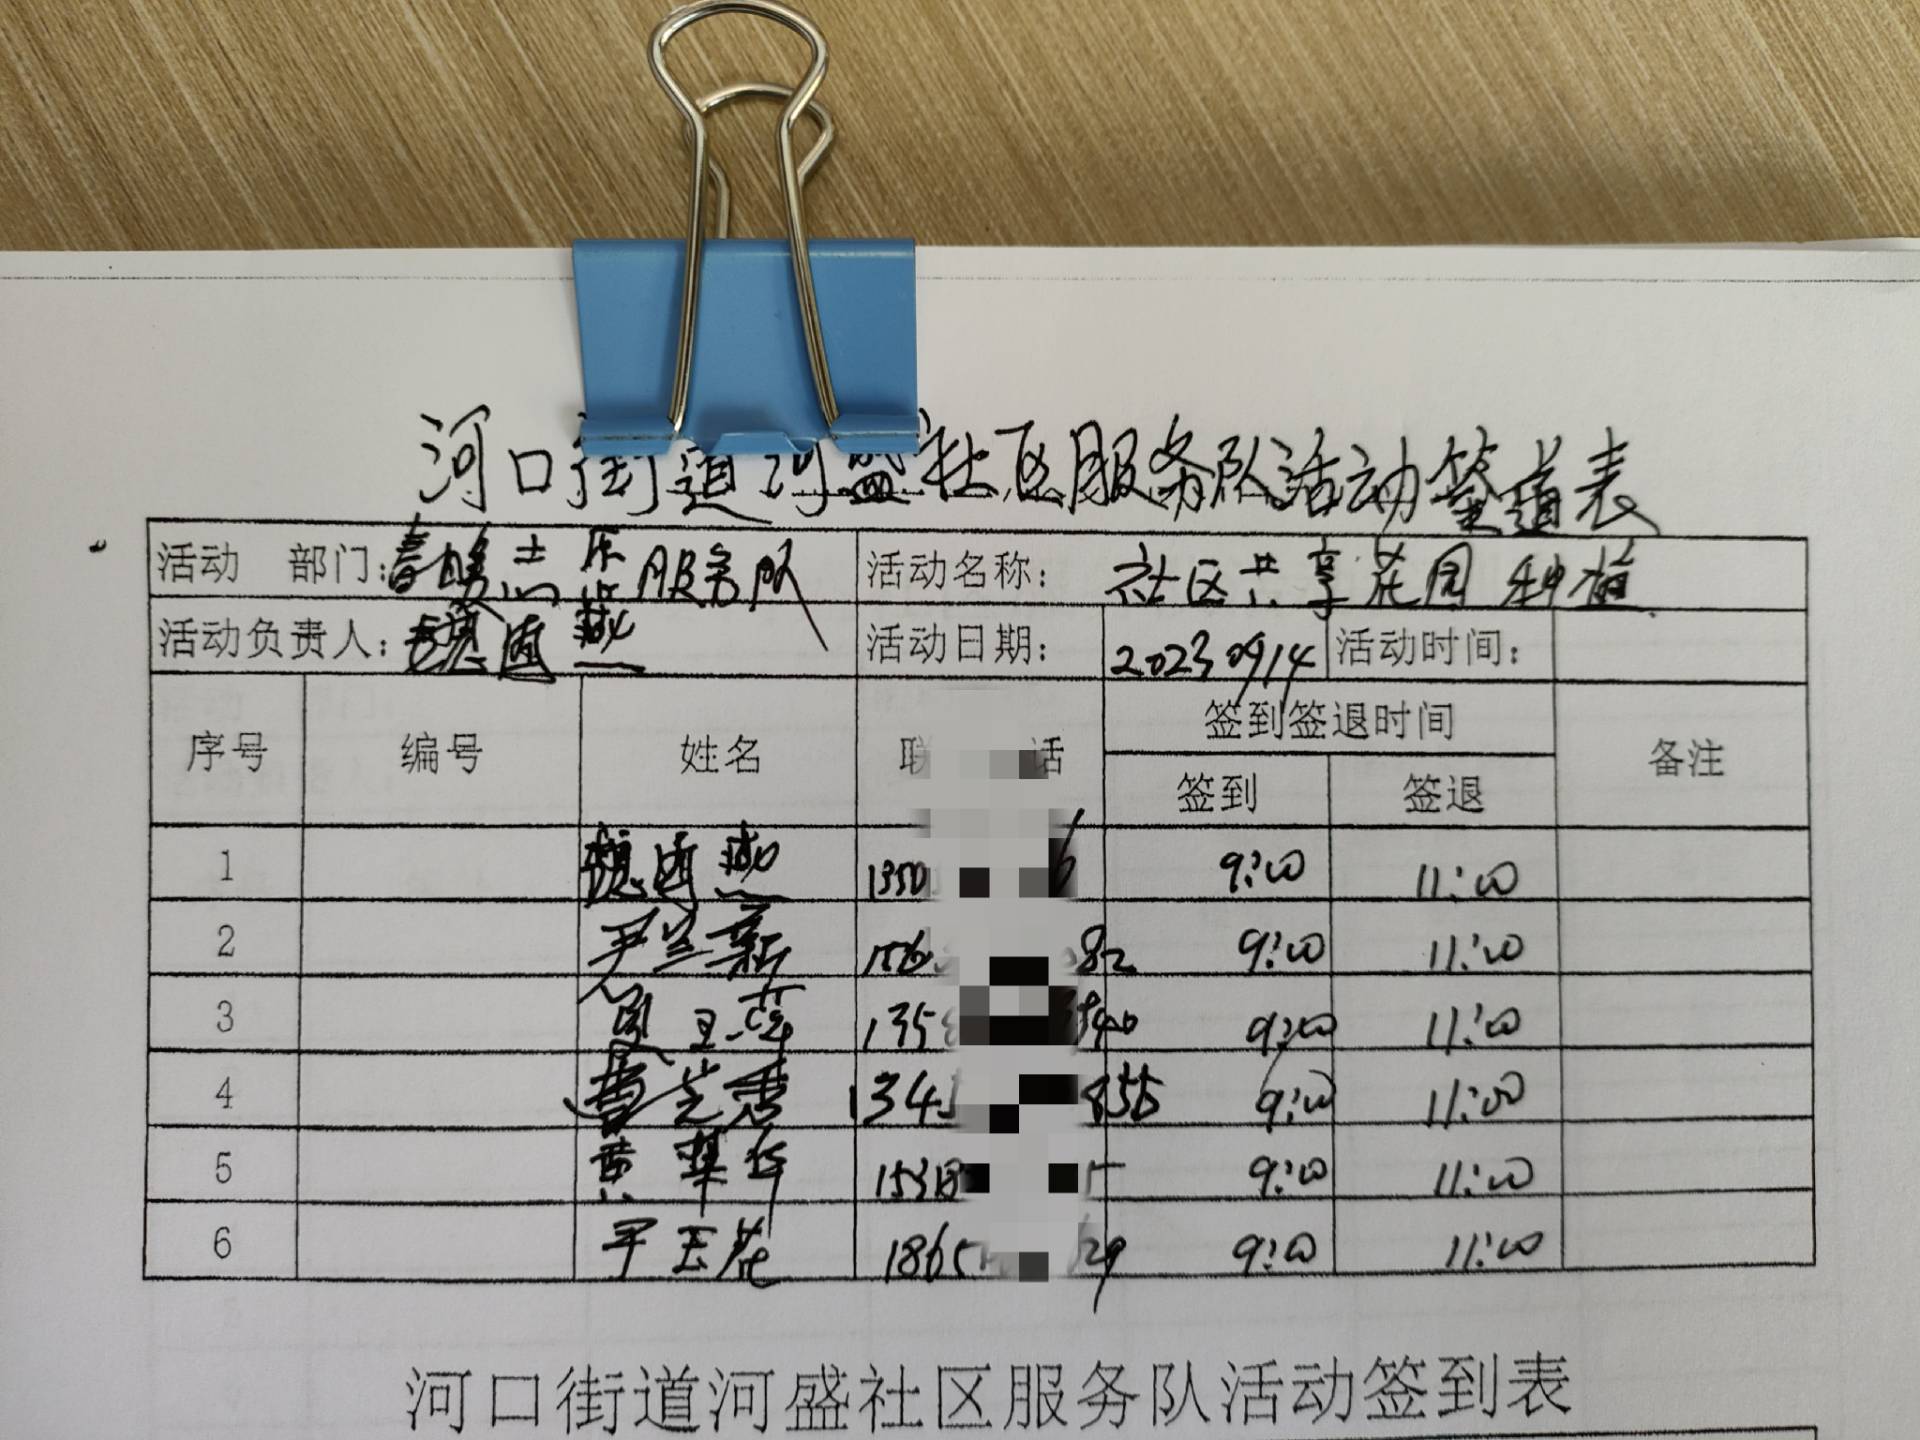 河口街道河盛社区服务队活动签道表
活动 部门：春暖志愿服务队 活动名称： 社区共享花园种植
活动负责人： 活动日期： 20230914 活动时间：
序号 编号 姓名 联 话 签到签退时间 备注
签到 签退
1 1350 6 9:00 11:00
2 尹兰新 156 82 9:00 11:00
3 135 940 9:00 11:00
4 曹芝秀 1345 855 9:00 11:00
5 黄翠华 1538 5 9:00 11:00
6 于玉花 1865 29 9:00 11:00
河口街道河盛社区服务队活动签到表